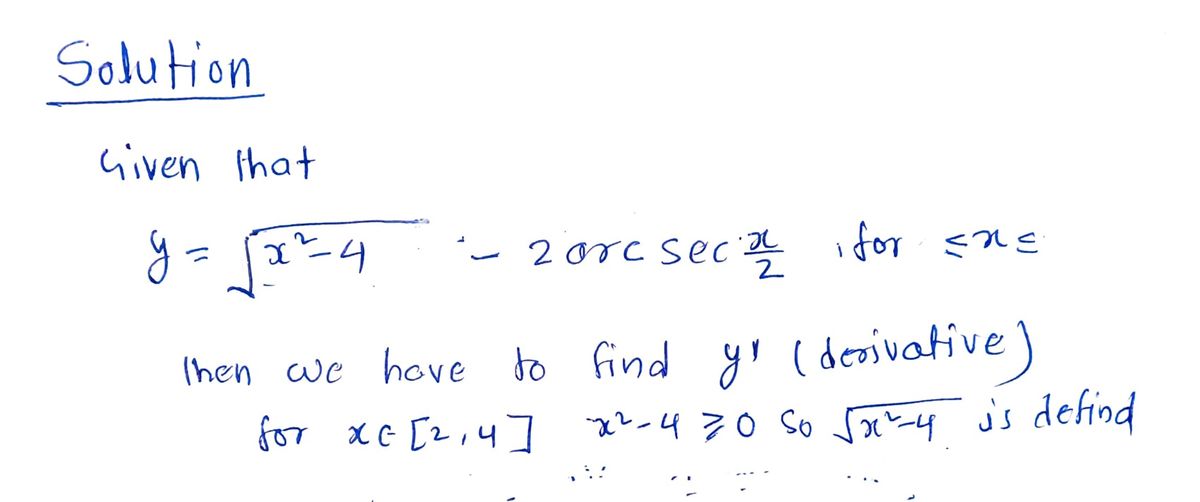 Solution
Given that
y = √x²-4 - 2 arc sec x/2 , for ≤ x ≤
Then we have to find y' (derivative)
for x ∈ [2,4] x²-4 ≥ 0 so √x²-4 is defind